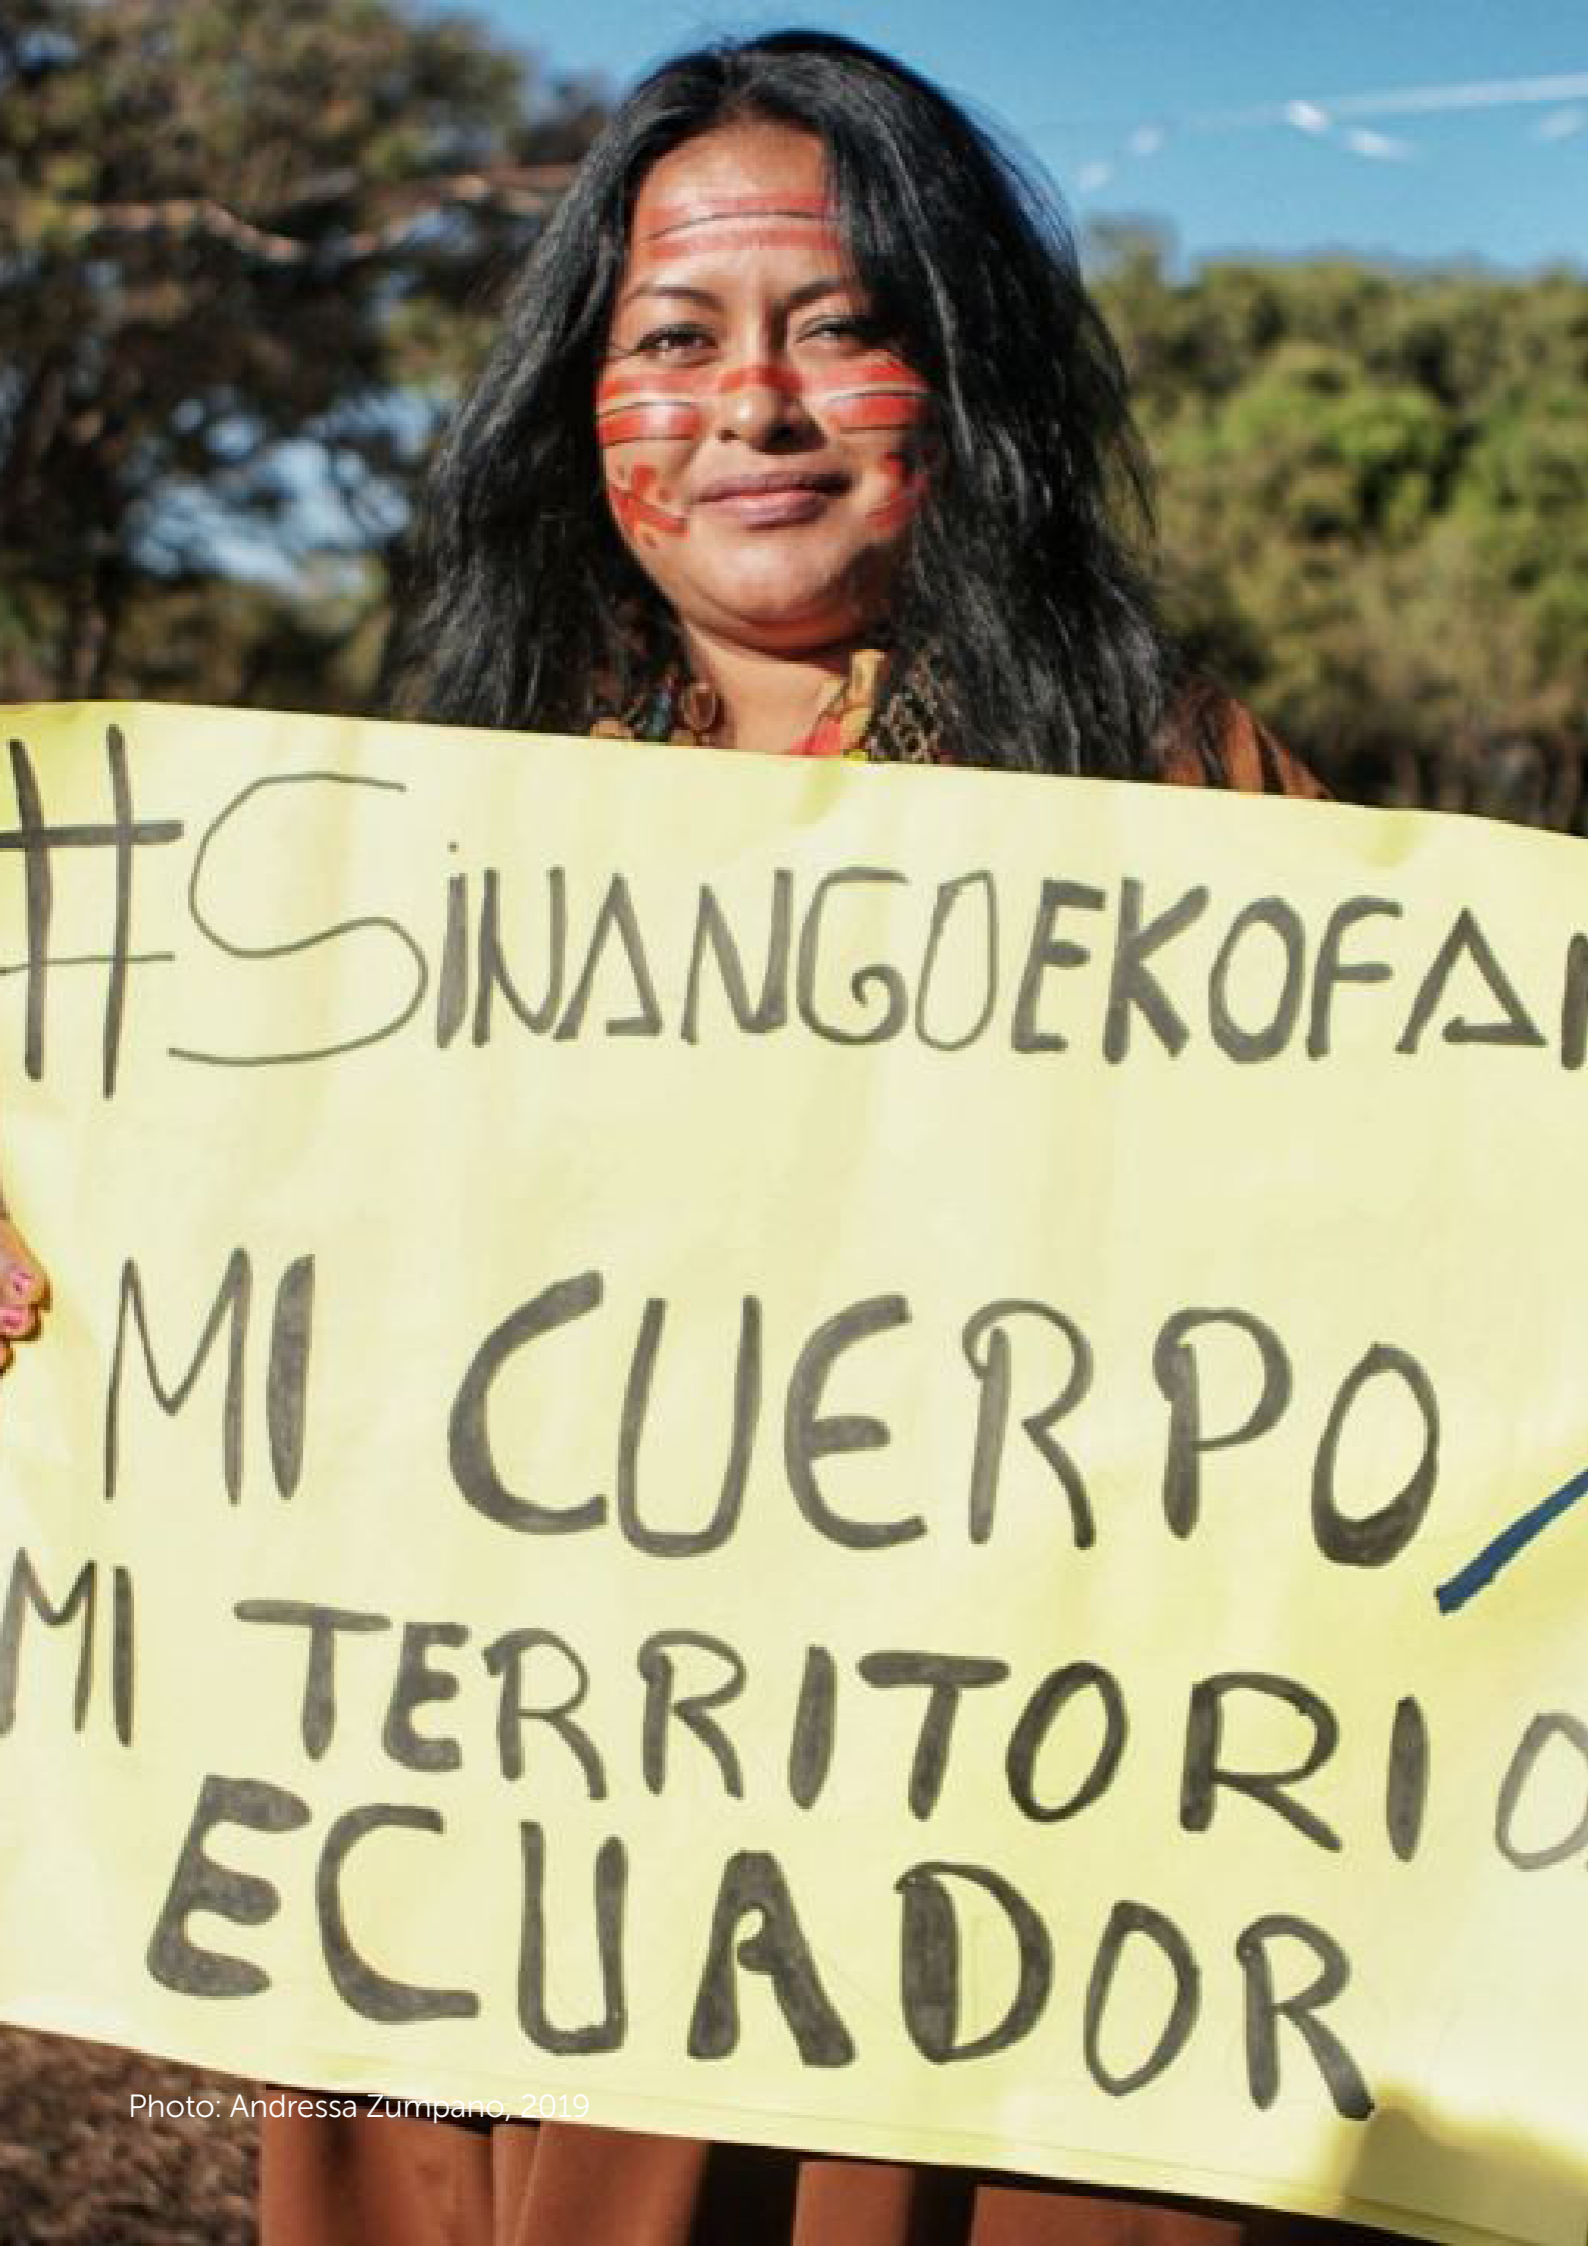 #SiNANGOEKOFAN
MI CUERPO
MI TERRITORIO
ECUADOR
Photo: Andressa Zumpano, 2019